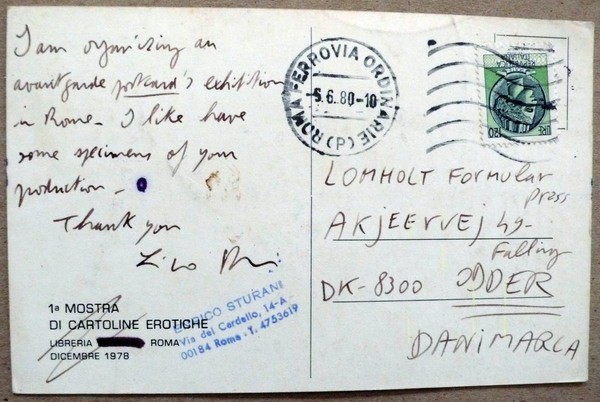 I am organizing an
avantgarde postcard's exhibition
in Rome - I like have
some specimens of your
production -
Thank you
1ª MOSTRA
DI CARTOLINE EROTICHE
LIBRERIA ROMA
DICEMBRE 1978
ENRICO STURANI
Via del Cardello, 14-A
00184 Roma - T. 4753619
ROMA FERROVIA ORDINARIE (P)
5.6.80-10
LIRE 120
LOMHOLT FORMULAR
Press
AKJEERVEJ 49-
Falling
DK-8300 ODDER
DANIMARCA